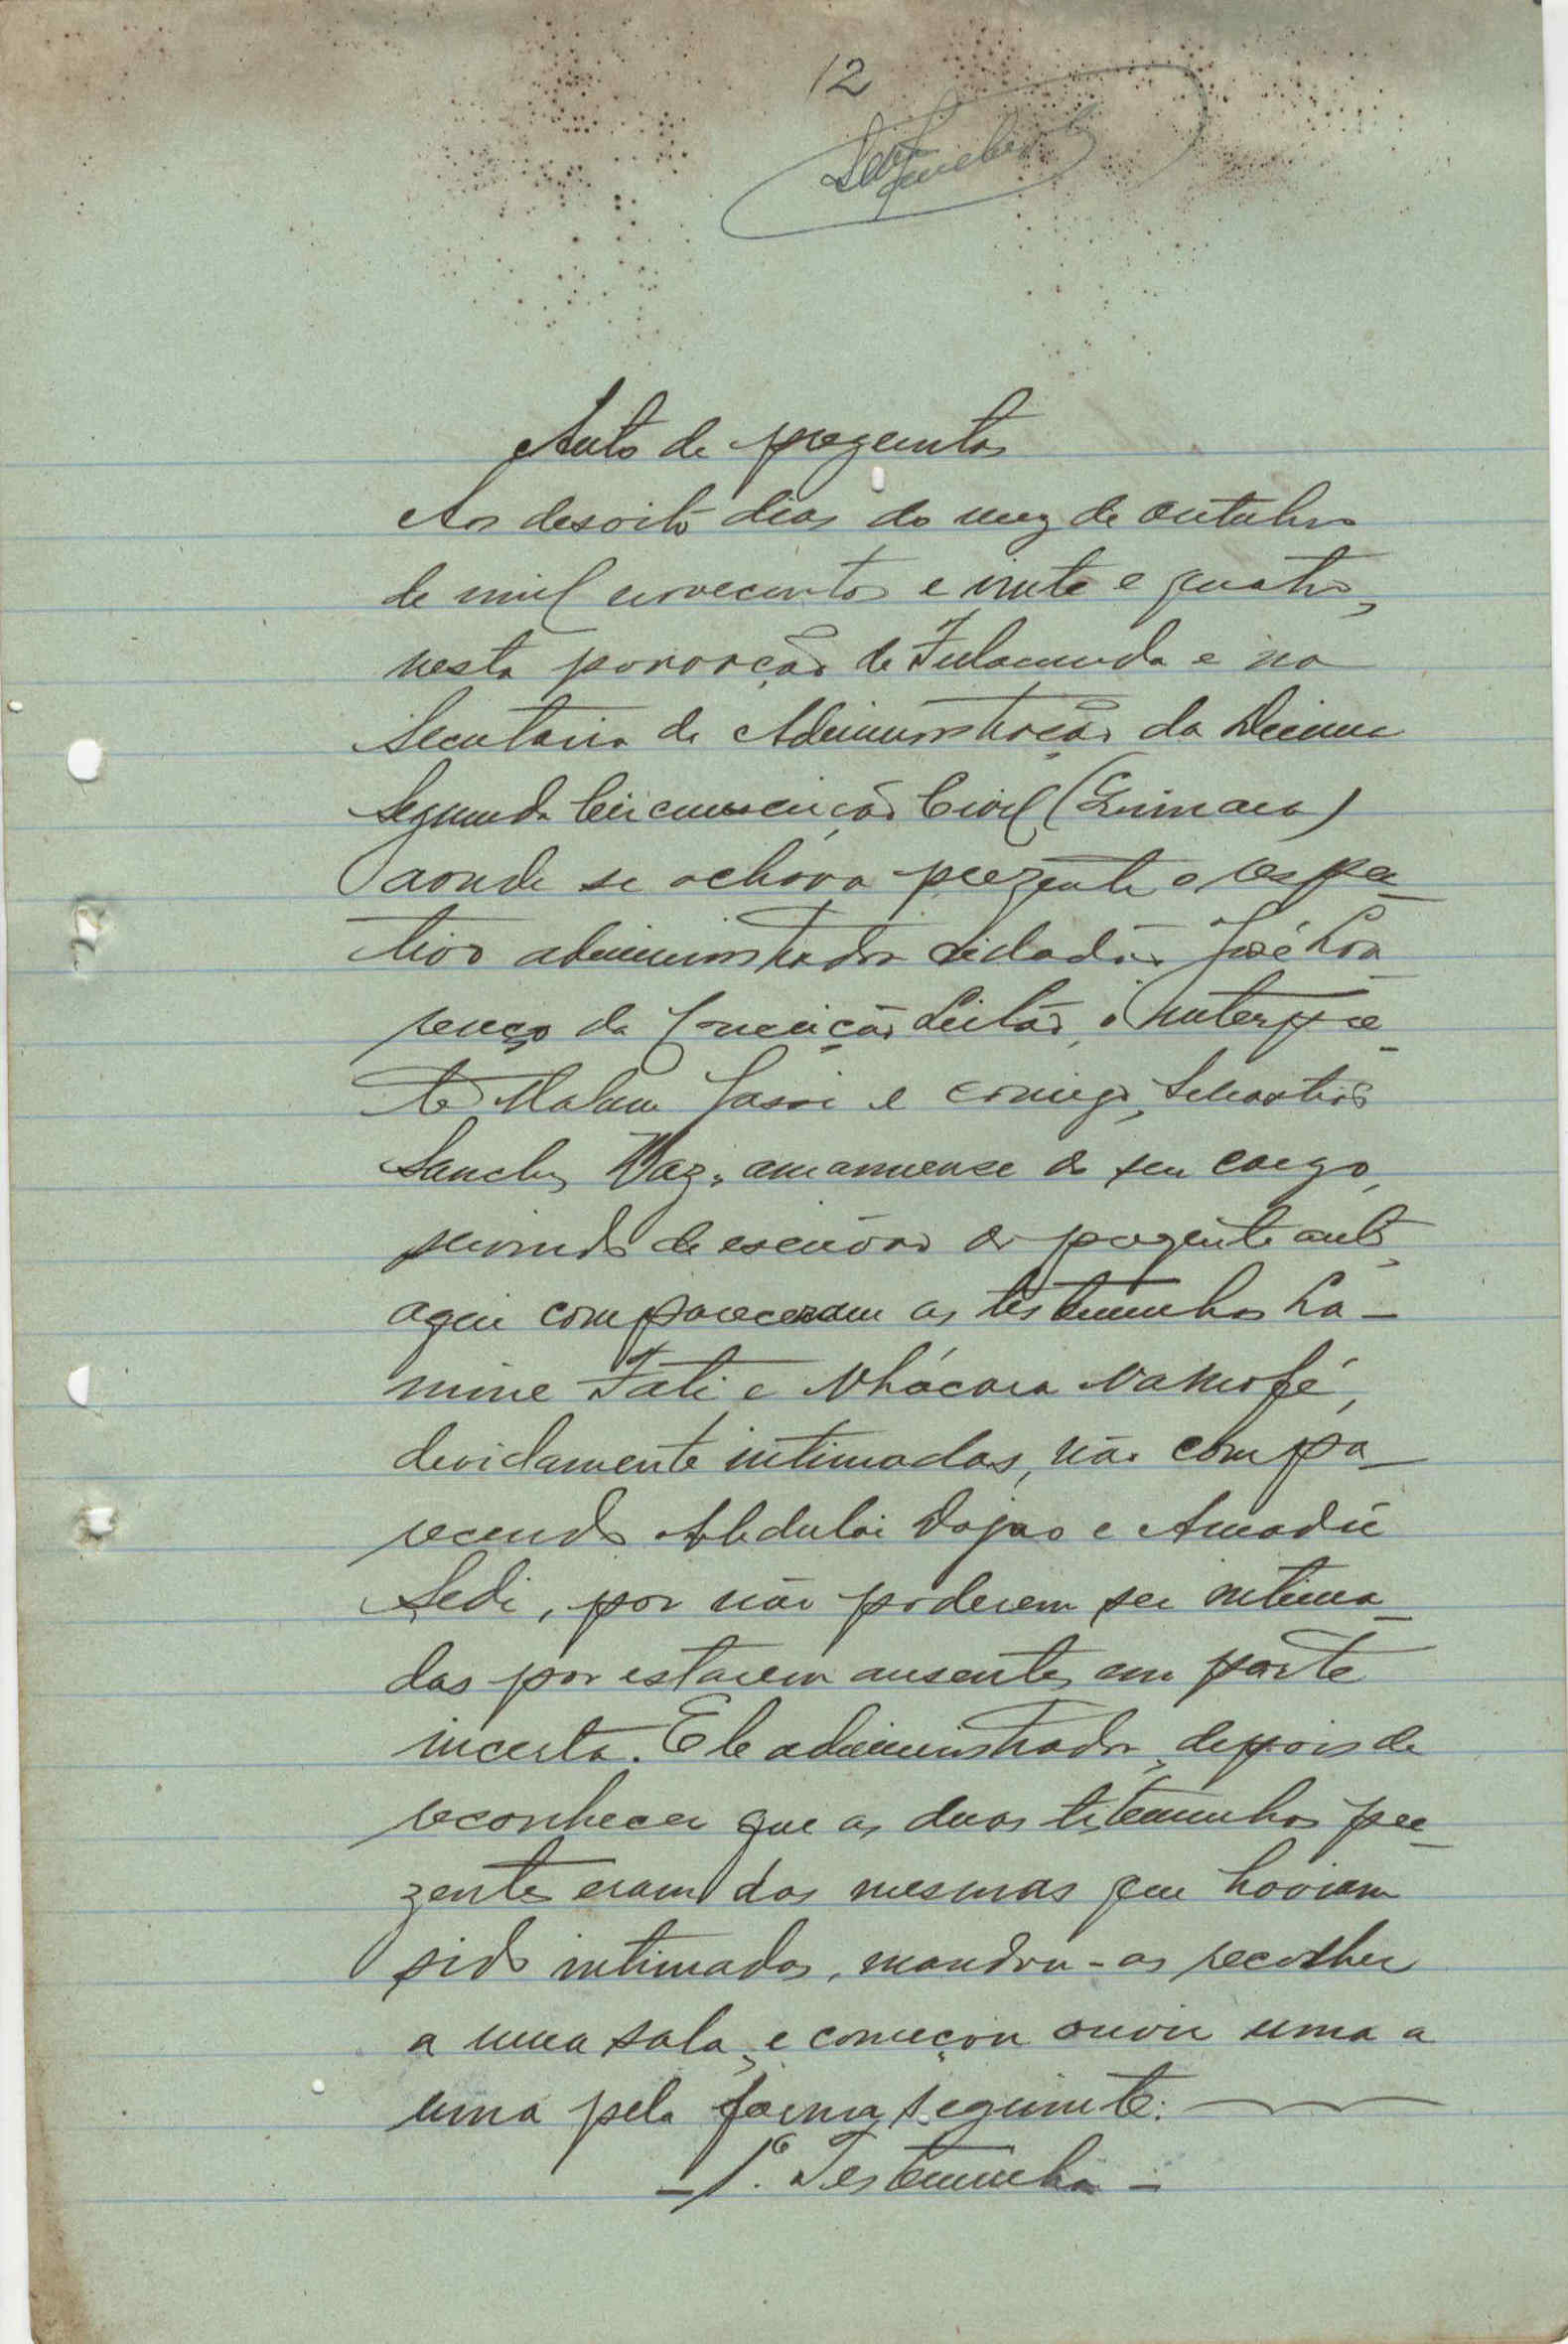 12
Auto de preguntas
Aos desoito dias do mez de outubro
de mil novecentos e vinte e quatro,
nesta povoação de Fulacunda e na
Secretaria da Administração da Decima
Segunda Circunscrição Civil (Quinara)
aonde se achava prezente o respe-
tivo administrador cidadão José Lou-
renço da Conceição Leitão, o interpre-
te Malam Sassi e comigo, Sebastião
Sanches Vaz, amanuense do seu cargo,
servindo de escrivão do prezente auto,
aqui compareceram as testemunhas La-
mine Fati e Nhácara Namofé,
devidamente intimadas, não compa-
recendo Abdulai Dajao e Amadú
Sedi, por não poderem ser intima-
das por estarem ausentes em parte
incerta. Ele administrador, depois de
reconhecer que as duas testemunhas pre-
zentes eram das mesmas que haviam
sido intimadas, mandou-as recolher
a uma sala, e começou ouvir uma a
uma pela forma seguinte:
- 1ª Testemunha -